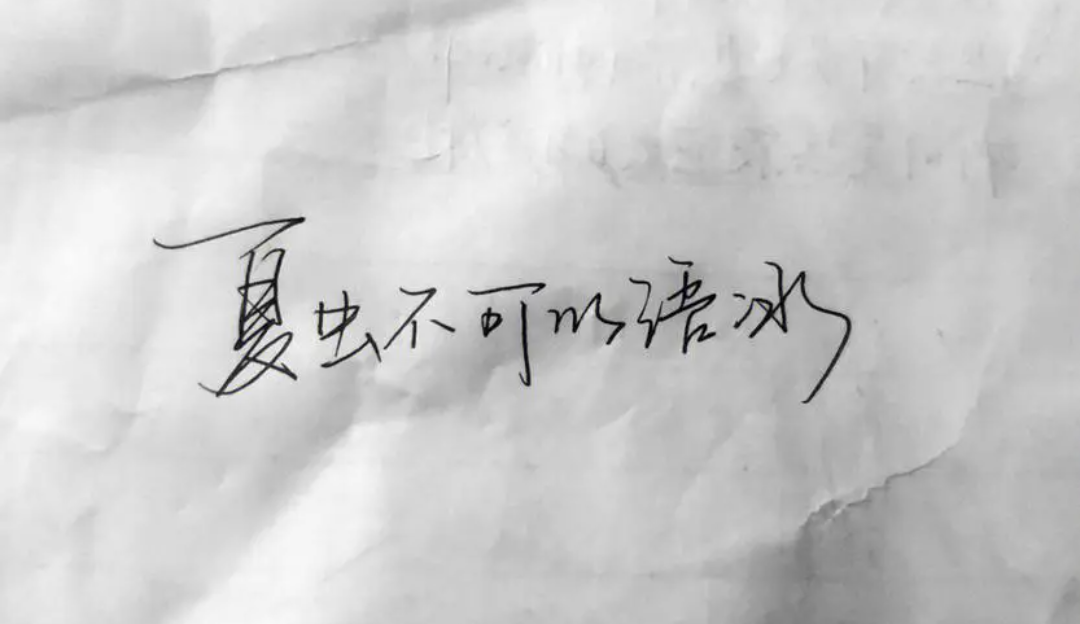 夏虫不可以语冰